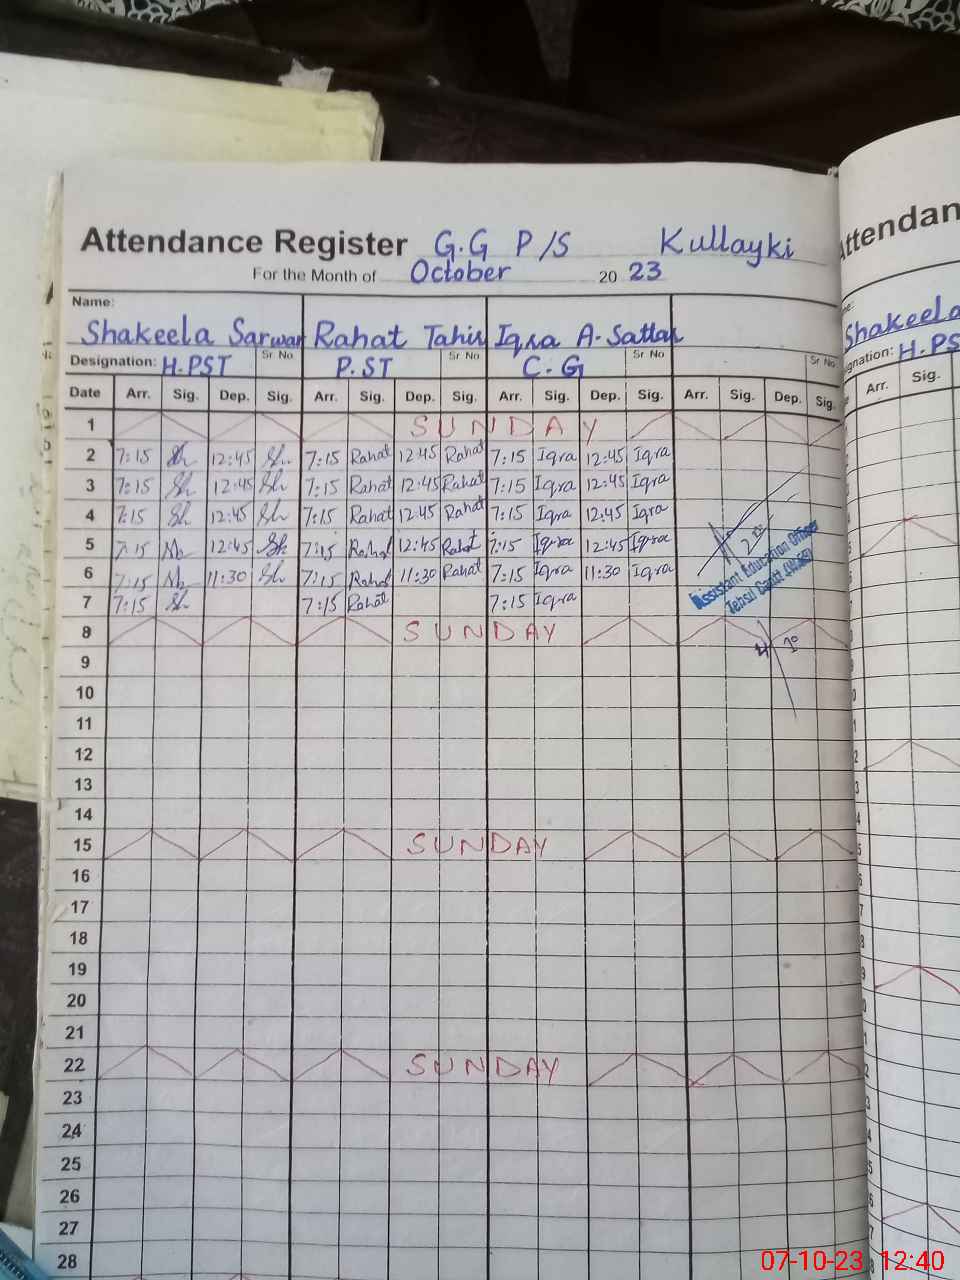 Attendance Register G.G P/S Kullayki
For the Month of October 20 23
Name:
Shakeela Sarwar Rahat Tahir Iqra A-Sattar
Designation: H.PST Sr No P.ST Sr No C.G Sr No Sr No
Date Arr. Sig. Dep. Sig. Arr. Sig. Dep. Sig. Arr. Sig. Dep. Sig. Arr. Sig. Dep. Sig.
1 SUNDAY
2 7:15 Sh 12:45 Sh 7:15 Rahat 12:45 Rahat 7:15 Iqra 12:45 Iqra
3 7:15 Sh 12:45 Sh 7:15 Rahat 12:45 Rahat 7:15 Iqra 12:45 Iqra
4 7:15 Sh 12:45 Sh 7:15 Rahat 12:45 Rahat 7:15 Iqra 12:45 Iqra
5 7:15 12:45 Sh 7:15 Rahat 12:45 Rahat 7:15 Iqra 12:45 Iqra
6 7:15 11:30 Sh 7:15 Rahat 11:30 Rahat 7:15 Iqra 11:30 Iqra
Assistant Education Officer
Tehsil Cantt
7 7:15 Sh 7:15 Rahat 7:15 Iqra
8 SUNDAY
9
10
11
12
13
14
15 SUNDAY
16
17
18
19
20
21
22 SUNDAY
23
24
25
26
27
28
Attendan
Shakeela
H.PS
Arr. Sig.
07-10-23 12:40